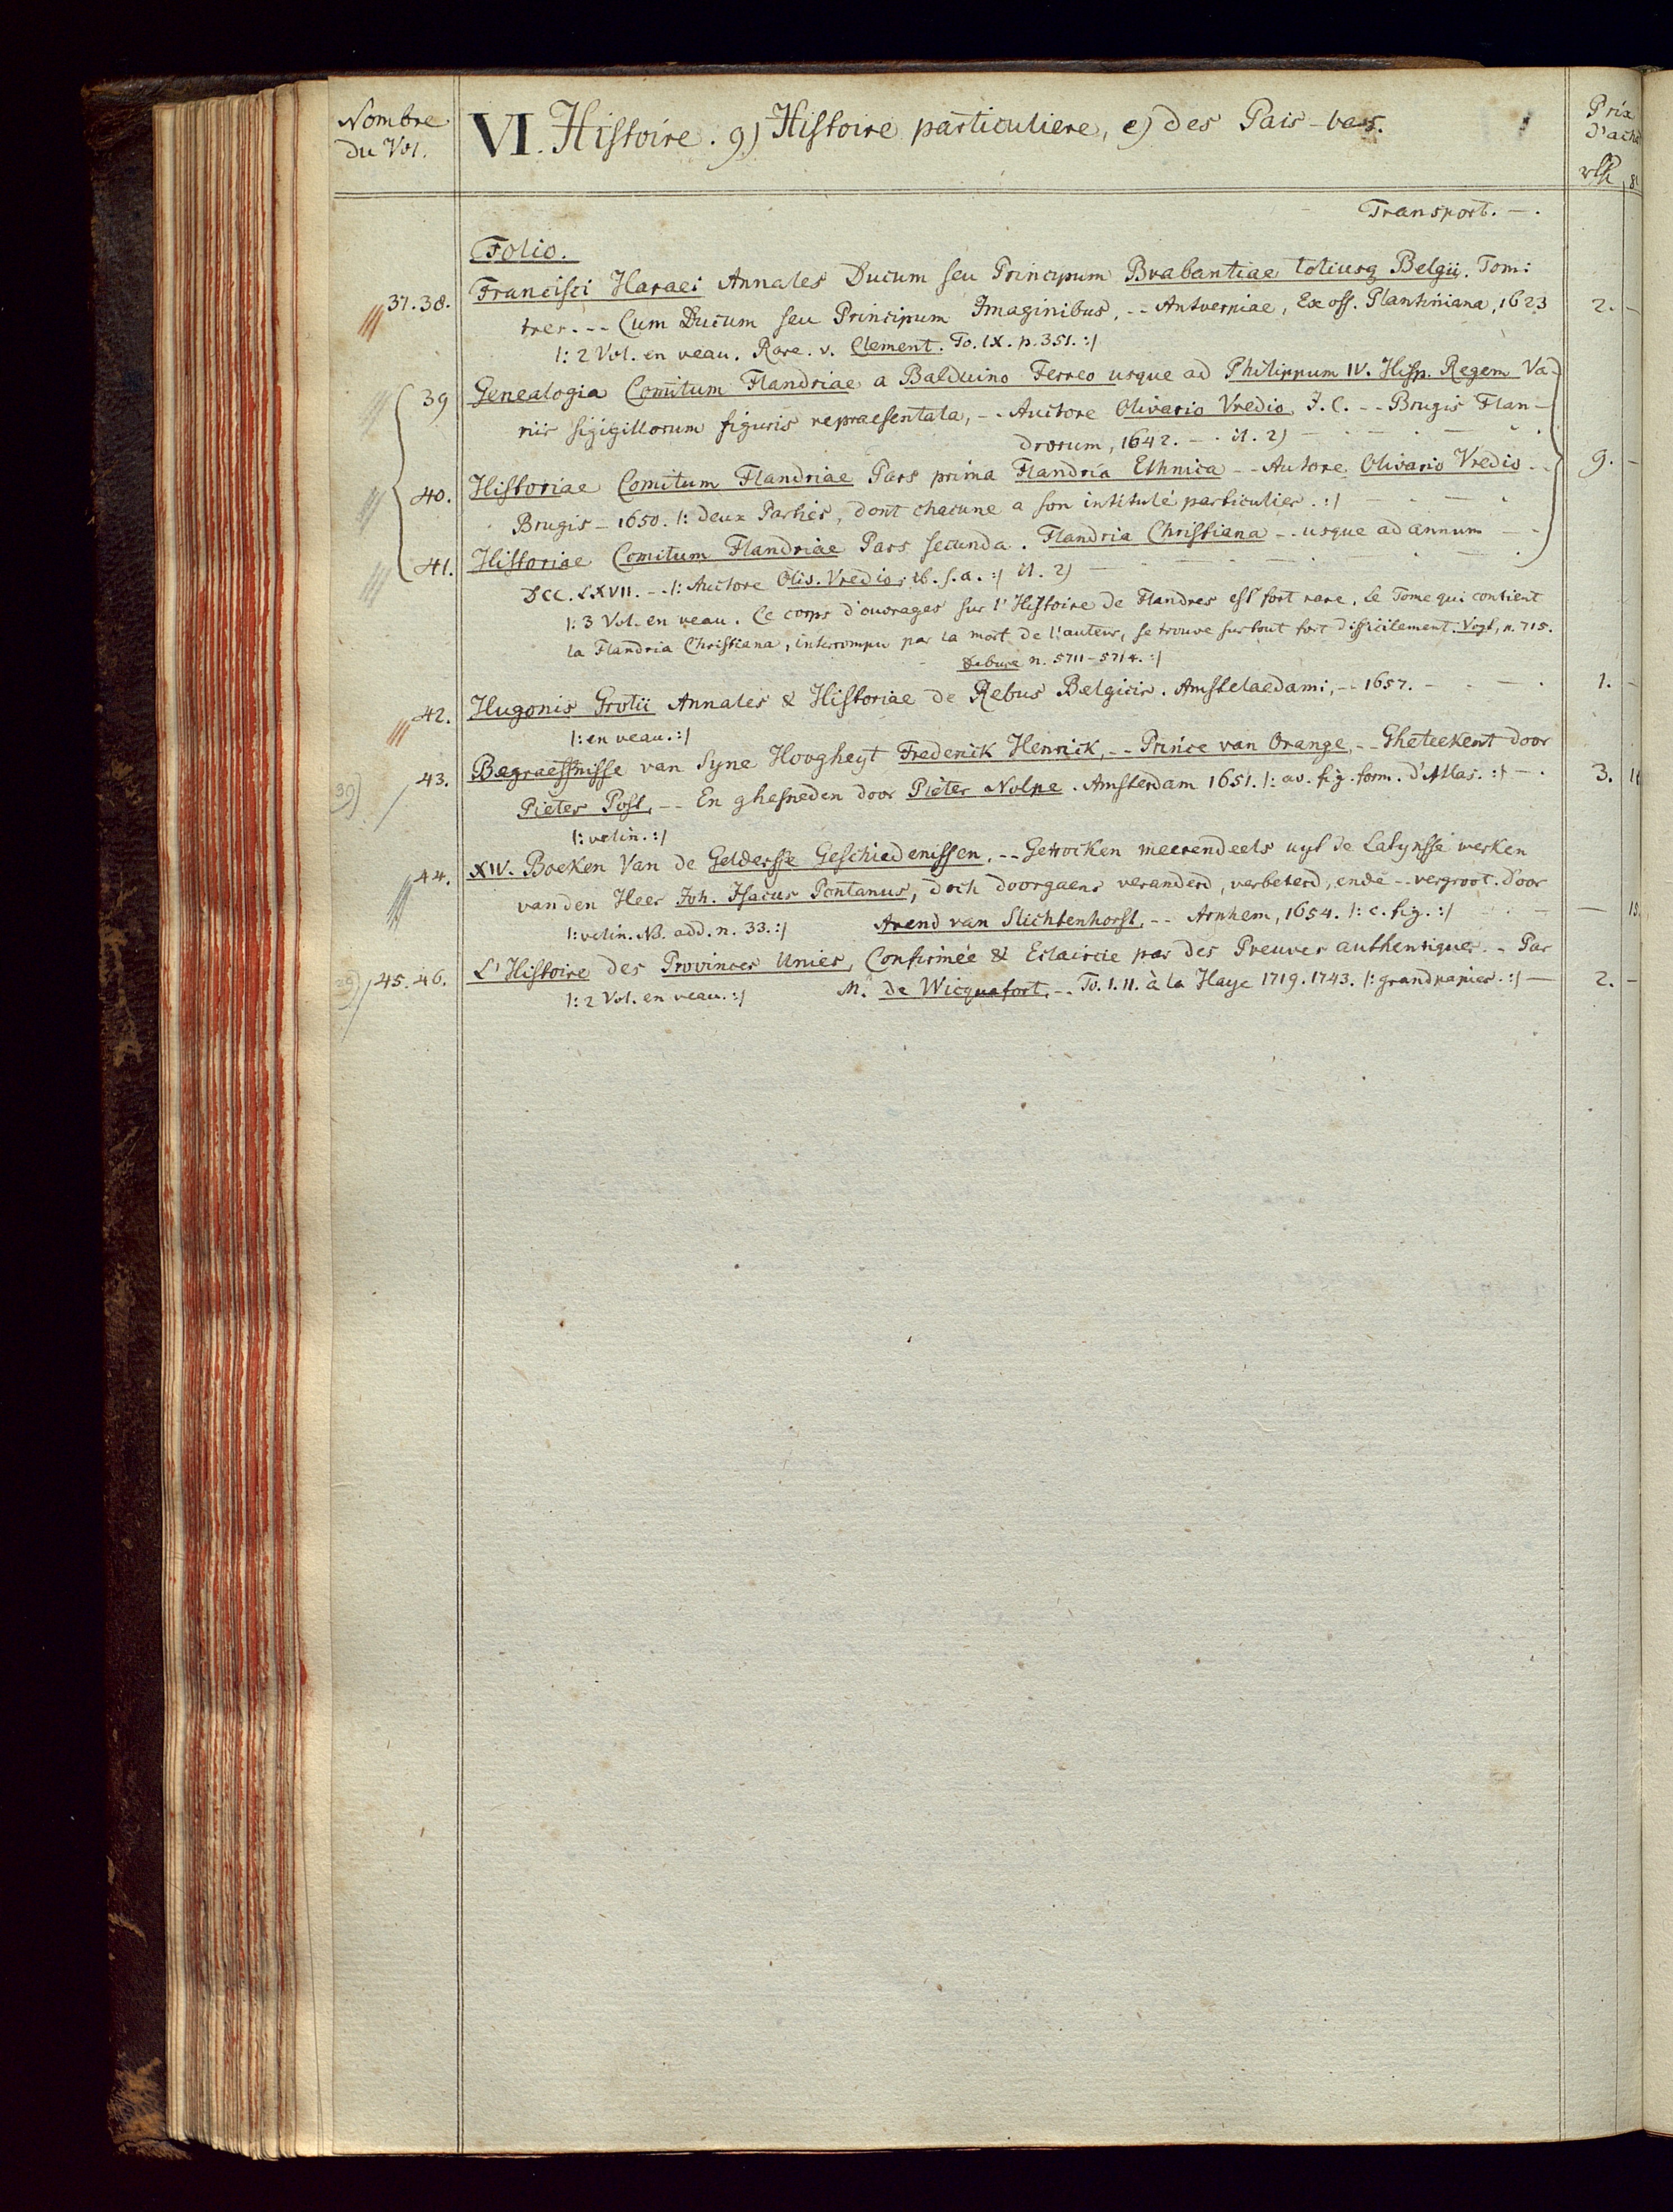 Nombre
du Vol.
VI. Histoire. g) Histoire particuliere, e) des Païs-bas.
Prix
d'acha
Transport. — .
Folio.
37.38. Francisci Haraei Annales Ducum seu Principum Brabantiae totiusq Belgii. Tomi
tres. -- Cum Ducum seu Principum Imaginibus, -- Antverpiae, Ex off. Plantiniana, 1623 2. —
/: 2 Vol. en veau. Rare. v. Clement. To. IX. p. 351. :/
39 Genealogia Comitum Flandriae a Balduino Ferreo usque ad Philippum IV. Hisp. Regem Va-
riis sigigillorum figuris repraesentata, -- Auctore Olivario Vredio, J. C. -- Brugis Flan-
drorum, 1642. — . i1. 2) —
40. Historiae Comitum Flandriae Pars prima Flandria Ethnica -- Autore Olivario Vredio -- 9. —
Brugis — 1650. /: deux Parties, dont chacune a son intitulé particulier. :/
41. Historiae Comitum Flandriae Pars secunda. Flandria Christiana -- usque ad annum
DCC. LXVII. -- /: Auctore Olis. Vredio; ib. s. a. :/ i1. 2) —
/: 3 Vol. en veau. Ce corps d'ouvrages sur l'Histoire de Flandres est fort rare, le Tome qui contient
la Flandria Christiana, interrompu par la mort de l'auteur, se trouve surtout fort difficilement. Vogt, p. 715.
Debure n. 5711-5714. :/
42. Hugonis Grotii Annales & Historiae de Rebus Belgicis. Amstelaedami, -- 1657. — 1. —
/: en veau. :/
43. Begraeffnisse van Syne Hoogheyt Frederik Henrik, -- Prince van Orange, -- Gheteekent door
39) Pieter Post, -- En ghesneden door Pieter Nolpe. Amsterdam 1651. /: av. fig. form. d'Atlas. :/ — . 3.
/: velin. :/
44. XIV. Boeken Van de Geldersse Geschiedenissen, -- Getrocken meerendeels uyt de Latynsse werken
vanden Heer Joh. Isacus Pontanus, doch doorgaens veranderd, verbeterd, ende -- vergroot. door
/: velin. NB. add. n. 33. :/ Arend van Slichtenhorst, -- Arnhem, 1654. /: c. fig. :/ —
45.46. L'Histoire des Provinces Unies, Confirmée & Eclaircie par des Preuves authentiques -- Par
/: 2 Vol. en veau. :/ Mr. de Wicquefort, -- To. I. II. à la Haye 1719. 1743. /: grand papier. :/ — 2. —